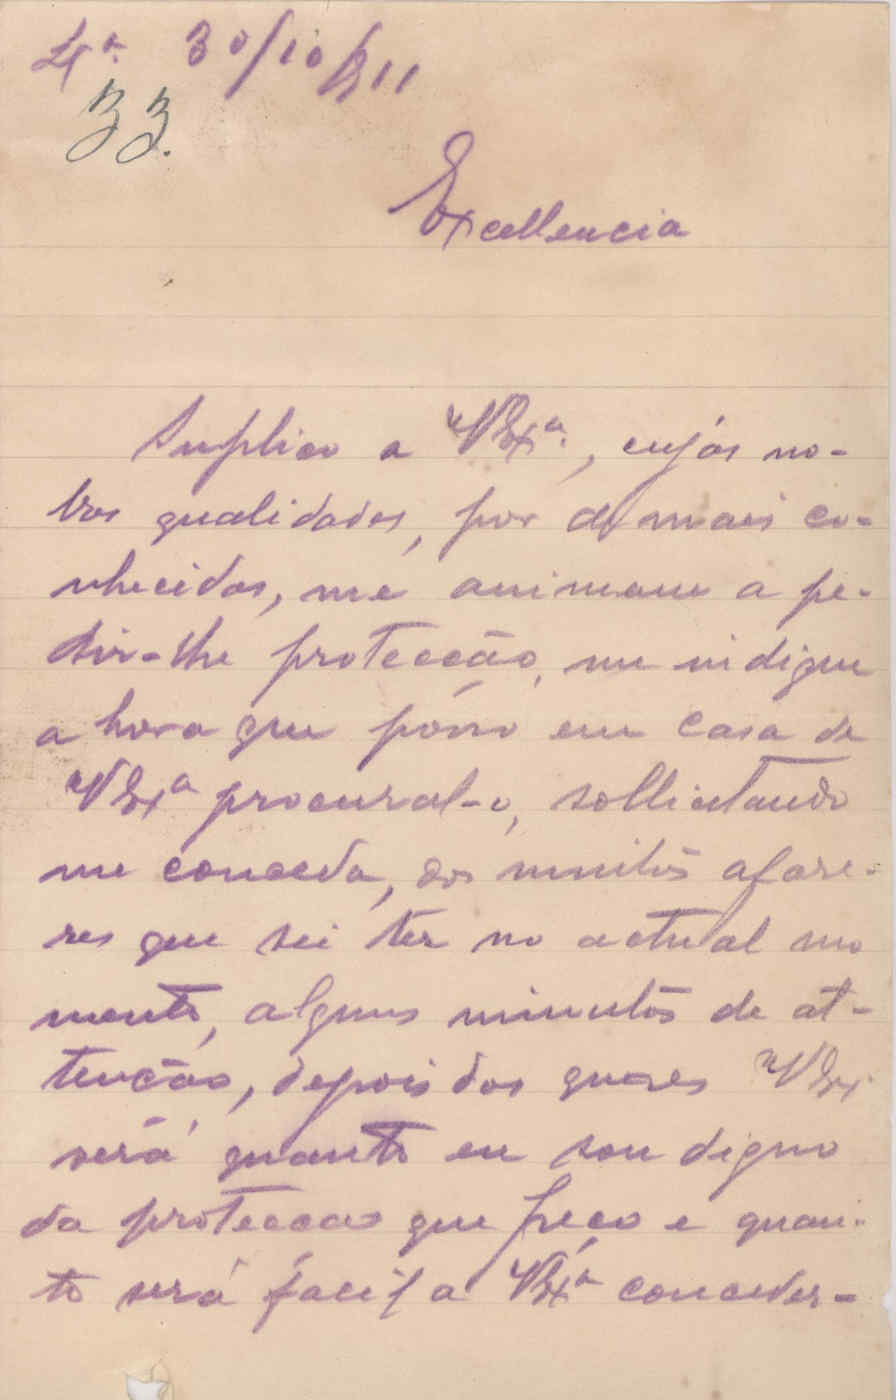 Lxª. 30/10/911
33.
Excellencia
Suplico a VExª., cujas no-
bres qualidades, por demais co-
nhecidas, me animam a pe-
dir-lhe protecção, me indique
a hora que pósso em casa de
VExª procural-o, sollicitando
me conceda, dos muitos afaze-
res que sei ter no actual mo
mento, alguns minutos de at-
tenção, depois dos quaes VEx
verá quanto eu sou digno
da protecção que peço e quan-
to será facil a VExª conceder-